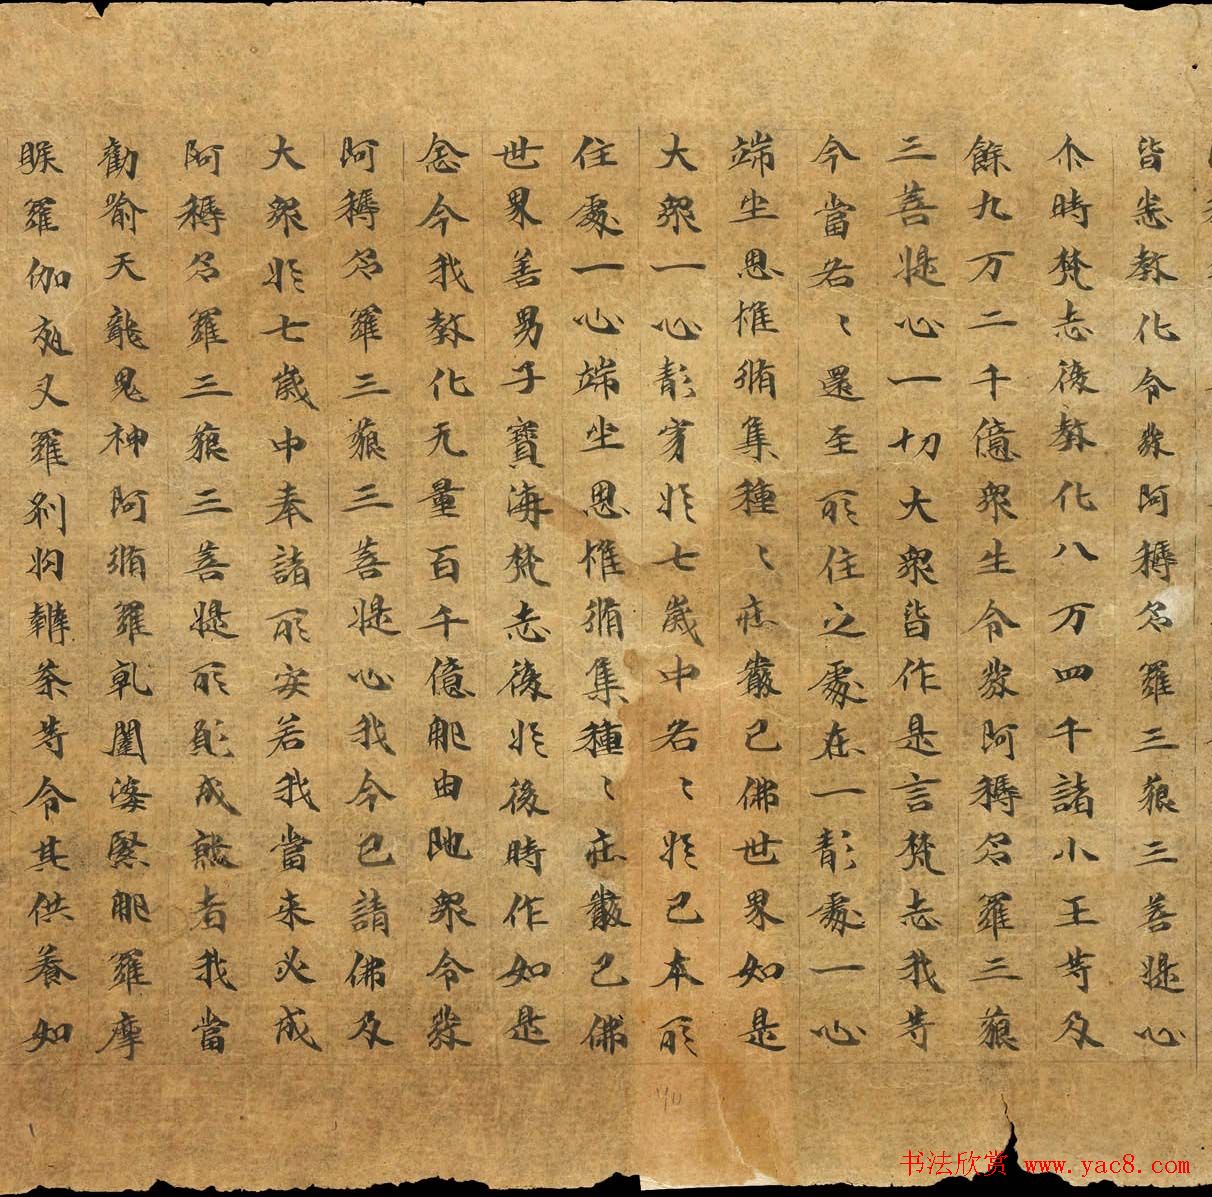 皆悉教化令發阿耨多羅三藐三菩提心
尒時梵志後教化八万四千諸小王等及
餘九万二千億眾生令發阿耨多羅三藐
三菩提心一切大眾皆作是言梵志我等
今當各〻還至所住之處在一靜處一心
端坐思惟脩集種〻莊嚴己佛世界如是
大眾一心靜穿於七歲中各〻於己本所
住處一心端坐思惟脩集種〻莊嚴己佛
世界善男子寶海梵志後於後時作如是
念今我教化无量百千億那由他眾令發
阿耨多羅三藐三菩提心我今已請佛及
大眾於七歲中奉諸所安若我當來必成
阿耨多羅三藐三菩提所願成就者我當
勸喻天龍鬼神阿脩羅乹闥婆緊那羅摩
睺羅伽夜叉羅剎拘辦荼等令其供養如
书法欣赏 www.yac8.com